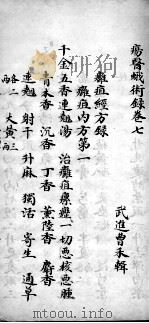 瘍醫蛾術錄卷七
武進曹禾輯
癰疽經方錄
癰疽內方第一
千金五香連翹湯 治癰疽瘰癧一切惡核惡腫
青木香 沉香 丁香 薰陸香 麝香
連翹 射干 升麻 獨活 寄生 通草
各二兩 大黃三兩